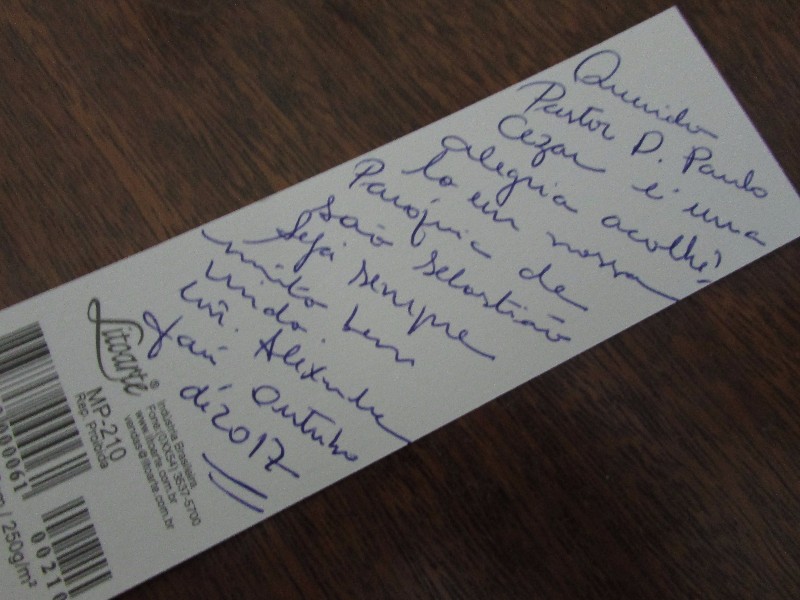 Querido
Pastor D. Paulo
Cezar é uma
alegria acolhê-
lo em nossa
Paróquia de
São Sebastião
Seja sempre
muito bem
vindo.
Alexandre
Jaú, Outubro
de 2017
Litoarte ®
MP-210
Rep. Proibida
Indústria Brasileira
Fone:(0XX54) 3637-5700
www.litoarte.com.br
vendas@litoarte.com.br
000061
00210
m / 250g/m²